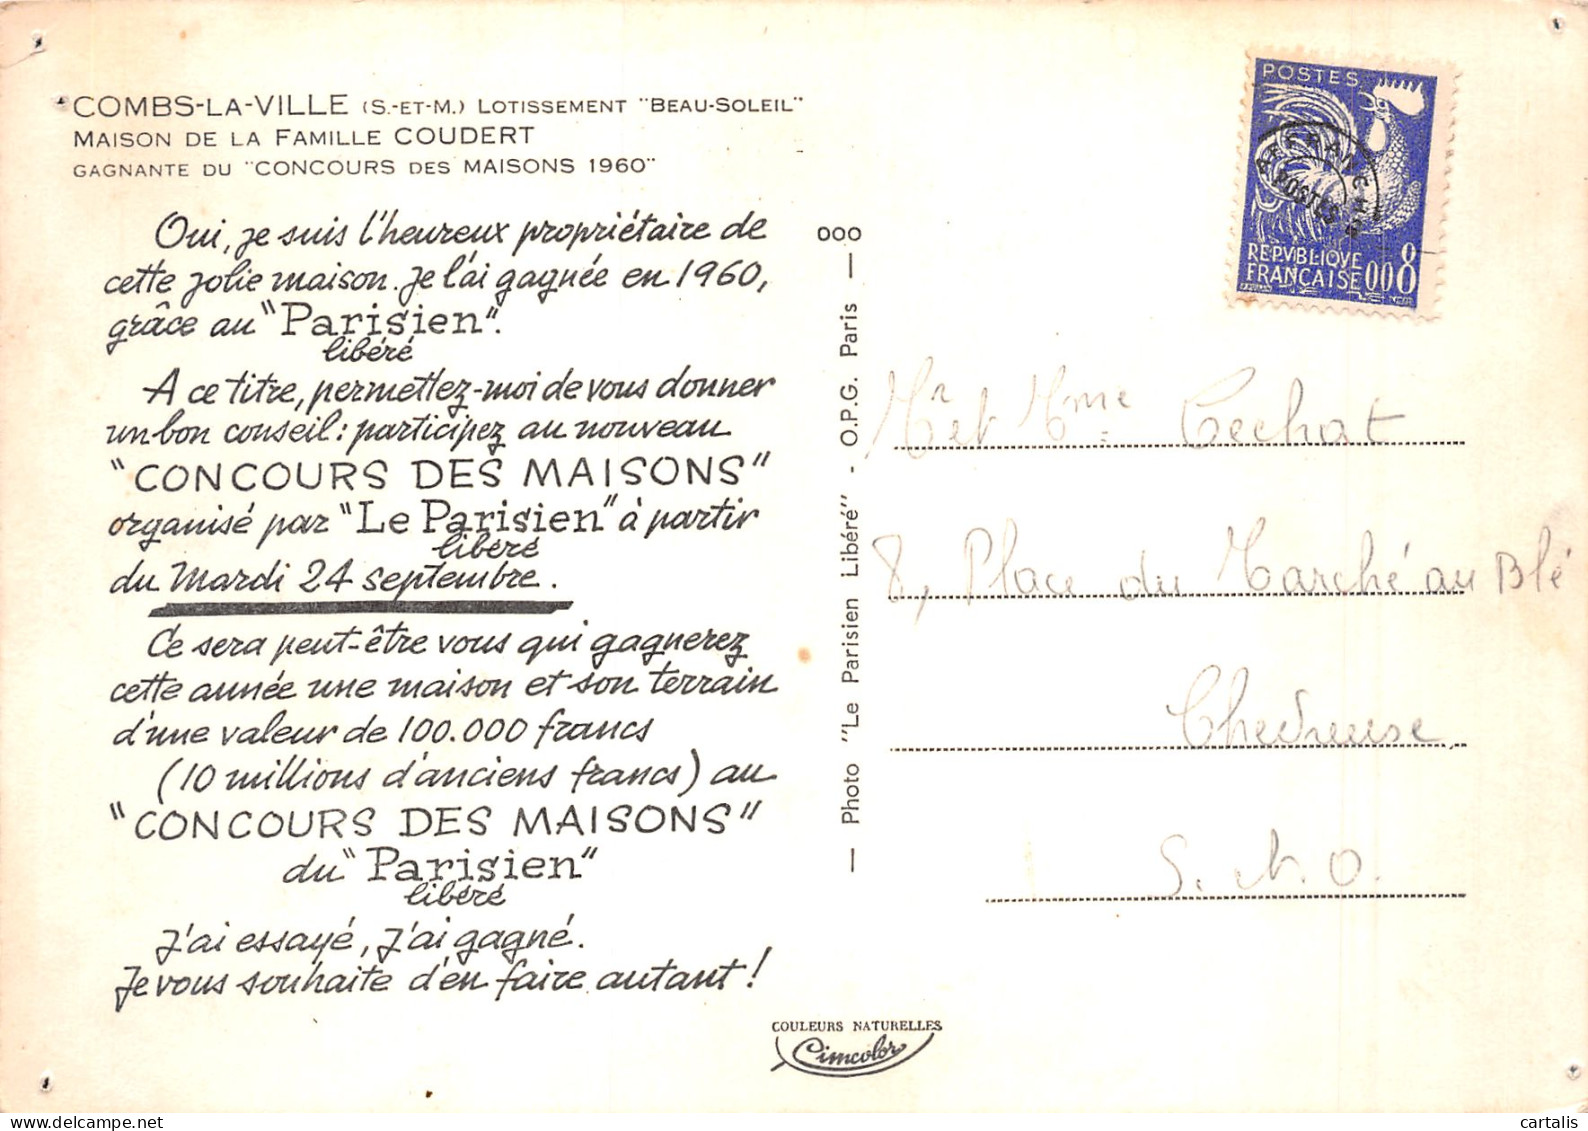 COMBS-LA-VILLE (S.-ET-M.) LOTISSEMENT "BEAU-SOLEIL"
MAISON DE LA FAMILLE COUDERT
GAGNANTE DU "CONCOURS DES MAISONS 1960"
Oui, je suis l'heureux propriétaire de
cette jolie maison. Je l'ai gagnée en 1960,
grâce au "Parisien".
libéré
A ce titre, permettez-moi de vous donner
un bon conseil : participez au nouveau
"CONCOURS DES MAISONS"
organisé par "Le Parisien" à partir
libéré
du Mardi 24 septembre.
Ce sera peut-être vous qui gagnerez
cette année une maison et son terrain
d'une valeur de 100.000 francs
(10 millions d'anciens francs) au
"CONCOURS DES MAISONS"
du "Parisien"
libéré
J'ai essayé, j'ai gagné.
Je vous souhaite d'en faire autant !
000
— Photo "Le Parisien Libéré" - O.P.G. Paris —
COULEURS NATURELLES
Cimcolor
POSTES
AFFRANCHts
POSTES
REPVBLIQVE
FRANÇAISE 008
Mr et Mme Cechat
8, Place du Marché au Blé
Chevreuse
S. &. O.
cartalis
www.delcampe.net